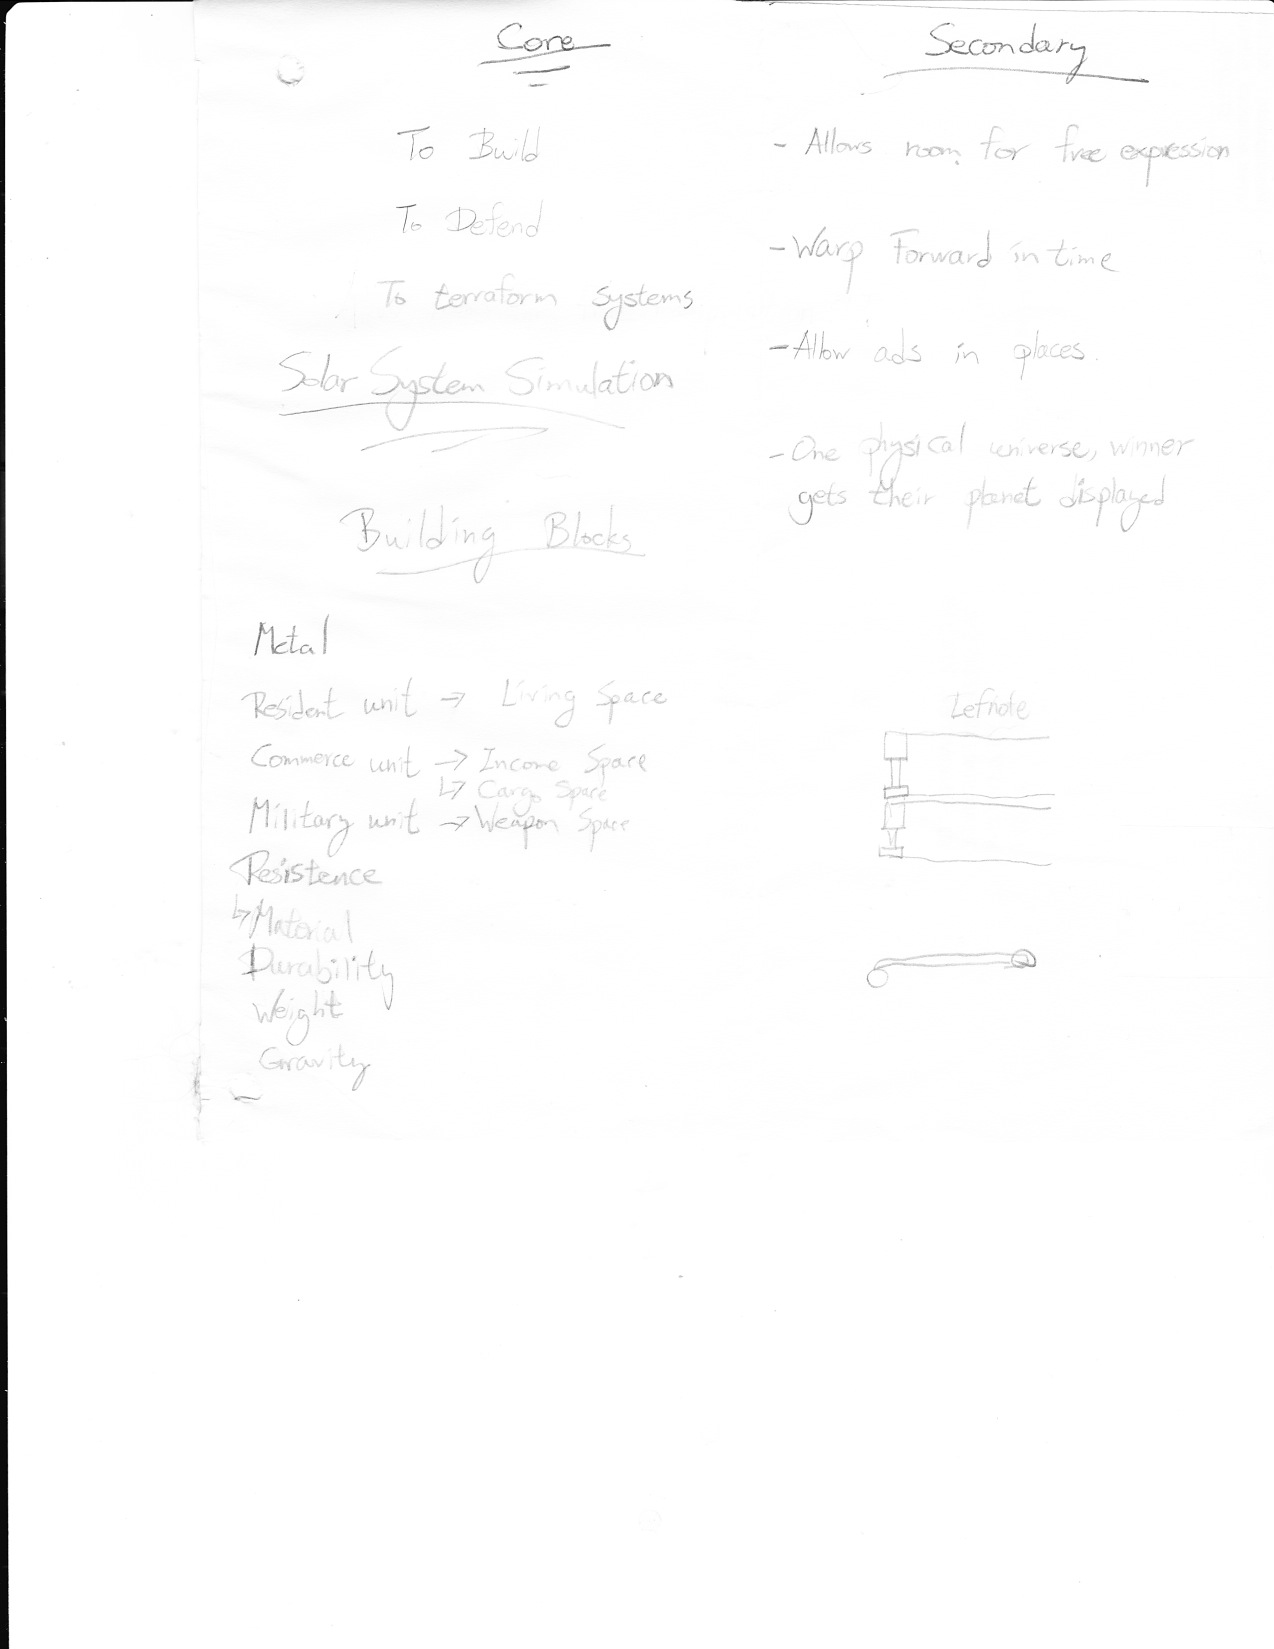 Core
To Build
To Defend
To terraform systems
Solar System Simulation
Building Blocks
Metal
Resident unit → Living Space
Commerce unit → Income Space
↳ Cargo Space
Military unit → Weapon Space
Resistence
↳ Material
Durability
Weight
Gravity
-
Secondary
- Allows room for free expression
- Warp Forward in time
- Allow ads in places.
- One physical universe, winner
gets their planet displayed